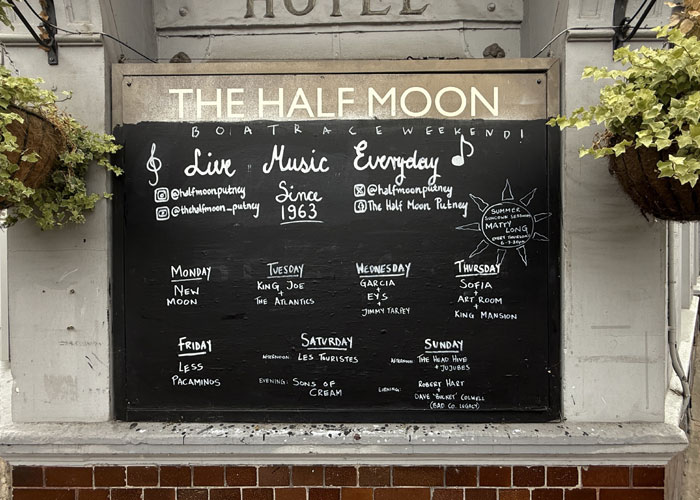 HOTEL
THE HALF MOON
BOATRACE WEEKEND!
Live Music Everyday
@halfmoonputney
@thehalfmoon_putney
Since
1963
@halfmoonputney
The Half Moon Putney
SUMMER
SUNDOWN SESSIONS
MATTY
LONG
EVERY THURSDAY
MONDAY
NEW
MOON
TUESDAY
KING JOE
+
THE ATLANTICS
WEDNESDAY
GARCIA
+
EYS
+
JIMMY TARPEY
THURSDAY
SOFIA
+
ART ROOM
+
KING MANSION
FRIDAY
LESS
PACAMINOS
SATURDAY
AFTERNOON: LES TOURISTES
EVENING: SONS OF
CREAM
SUNDAY
AFTERNOON: THE HEAD HIVE
+ JUJUBES
EVENING: ROBERT HART
+
DAVE 'BUCKET' COLWELL
(BAD CO. LEGACY)